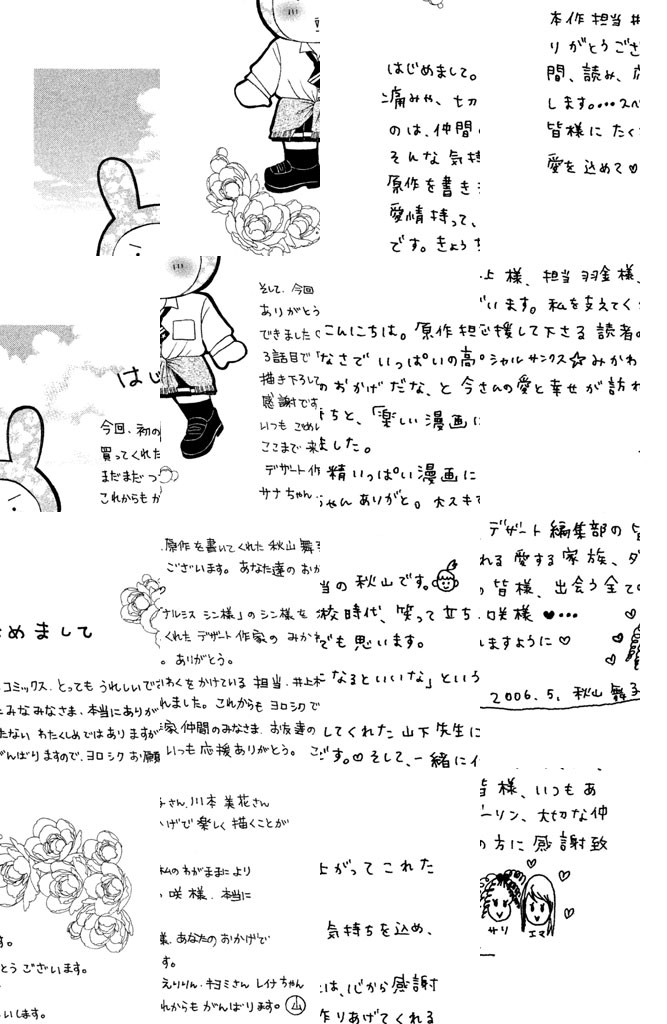 はじめまして。
痛みや、七
のは、仲間
そんな気持
原作を書き
愛情持って、
です。きょうち
本作担当井
りがとうござ
間、読み、応
します。・・・スペ
皆様にたく
愛を込めて♡
はじ
今回、初の
買ってくれた
まだまだつ
これからもが
そして、今回
ありがとう
できました
3話目で
描き下ろして
感謝です
いつもごめい
ここまで来
デザート作
サナちゃん
こんにちは。原作担
なさでいっぱいの高
のおかげだな、と今
ちと、「楽しい漫画に
ました。
精いっぱい漫画に
ちゃんありがと。大スキで
上様、担当羽金様、
います。私を支えてく
応援して下さる読者の
シャルサンクス☆みかわ
さんの愛と幸せが訪れ
めまして
コミックス、とってもうれしいで
たみなみなさま、本当にありが
たないわたくしめではありますが
がんばりますので、ヨロシクお願
原作を書いてくれた秋山舞子
ございます。あなた達のおか
ナルミスシン様」のシン様を
くれたデザート作家のみかわ
。ありがとう。
わくをかけている担当、井上様
れました。これからもヨロシクで
家仲間のみなさま、お友達の
いつも応援ありがとう。
当の秋山です。
校時代、笑って立ち
でも思います。
になるといいな」という
してくれた山下先生に
ございます。♡そして、一緒にイ
デザート編集部の皆
れる愛する家族、ダ
の皆様、出会う全ての
咲様♥・・・
しますように♡
2006.5. 秋山舞子
す。
とうございます。
いします。
子さん、川本美花さん
かげで楽しく描くことが
私のわがままにより
咲様、本当に
美、あなたのおかげで
す。
えりりん、キヨミさん、レイナちゃん
れからもがんばります。山
上がってこれた
気持ちを込め、
は、心から感謝
作りあげてくれる
皆様、いつもあ
ーリン、大切な仲
の方に感謝致
サリ エマ